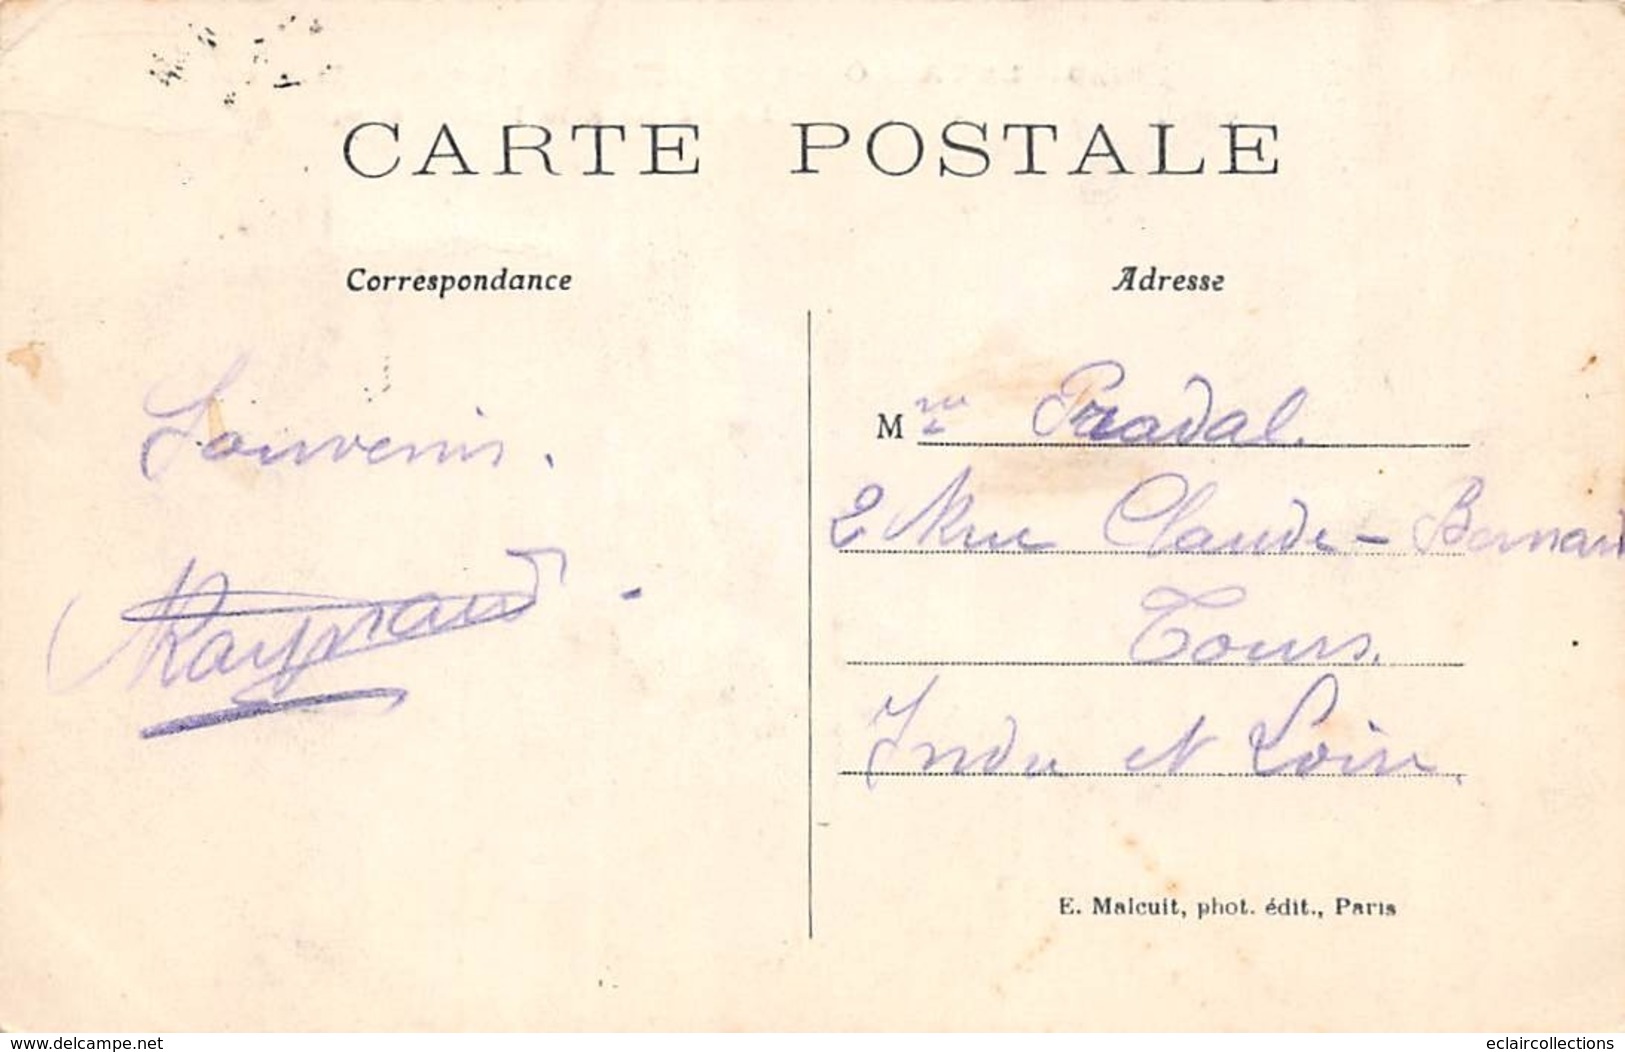 CARTE POSTALE
Correspondance
Souvenirs.
Raynaud
Adresse
Mme Pradal.
2 Rue Claude-Bernard
Tours.
Indre et Loire.
E. Malcuit, phot. édit., Paris
www.delcampe.net
eclaircollections